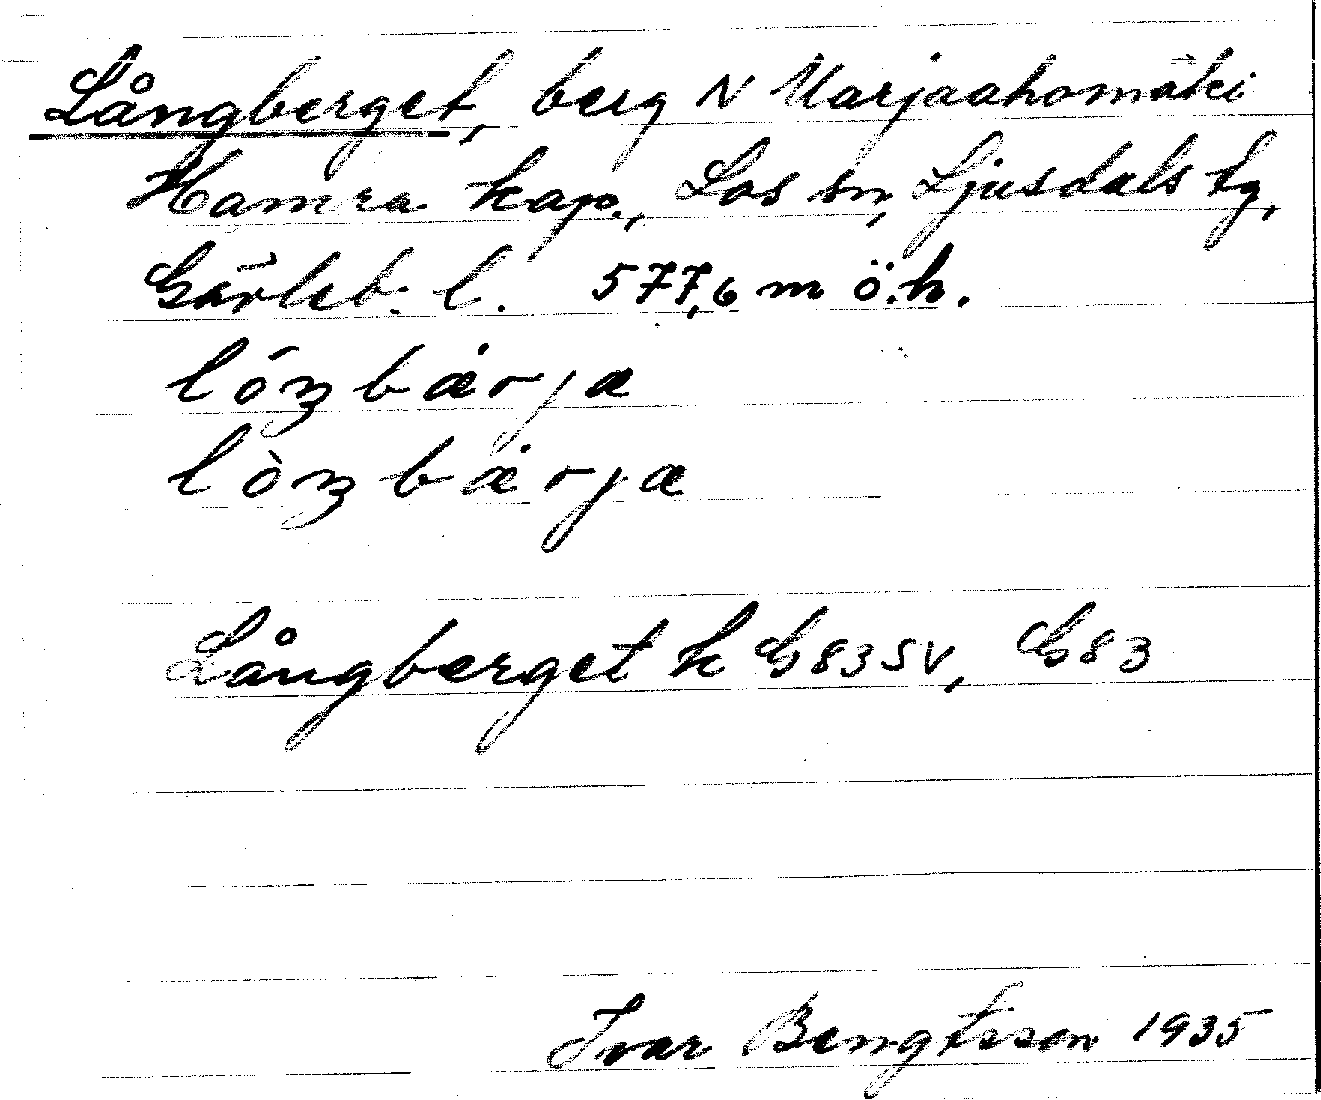 Långberget, berg N Varjaahomäki
Hamra kap., Los sn, Ljusdals tg,
Gävleb. l. 577,6 m ö.h.
lóŋbærja
lòŋbærja
Långberget k G83SV, G83
Ivar Bengtsson 1935